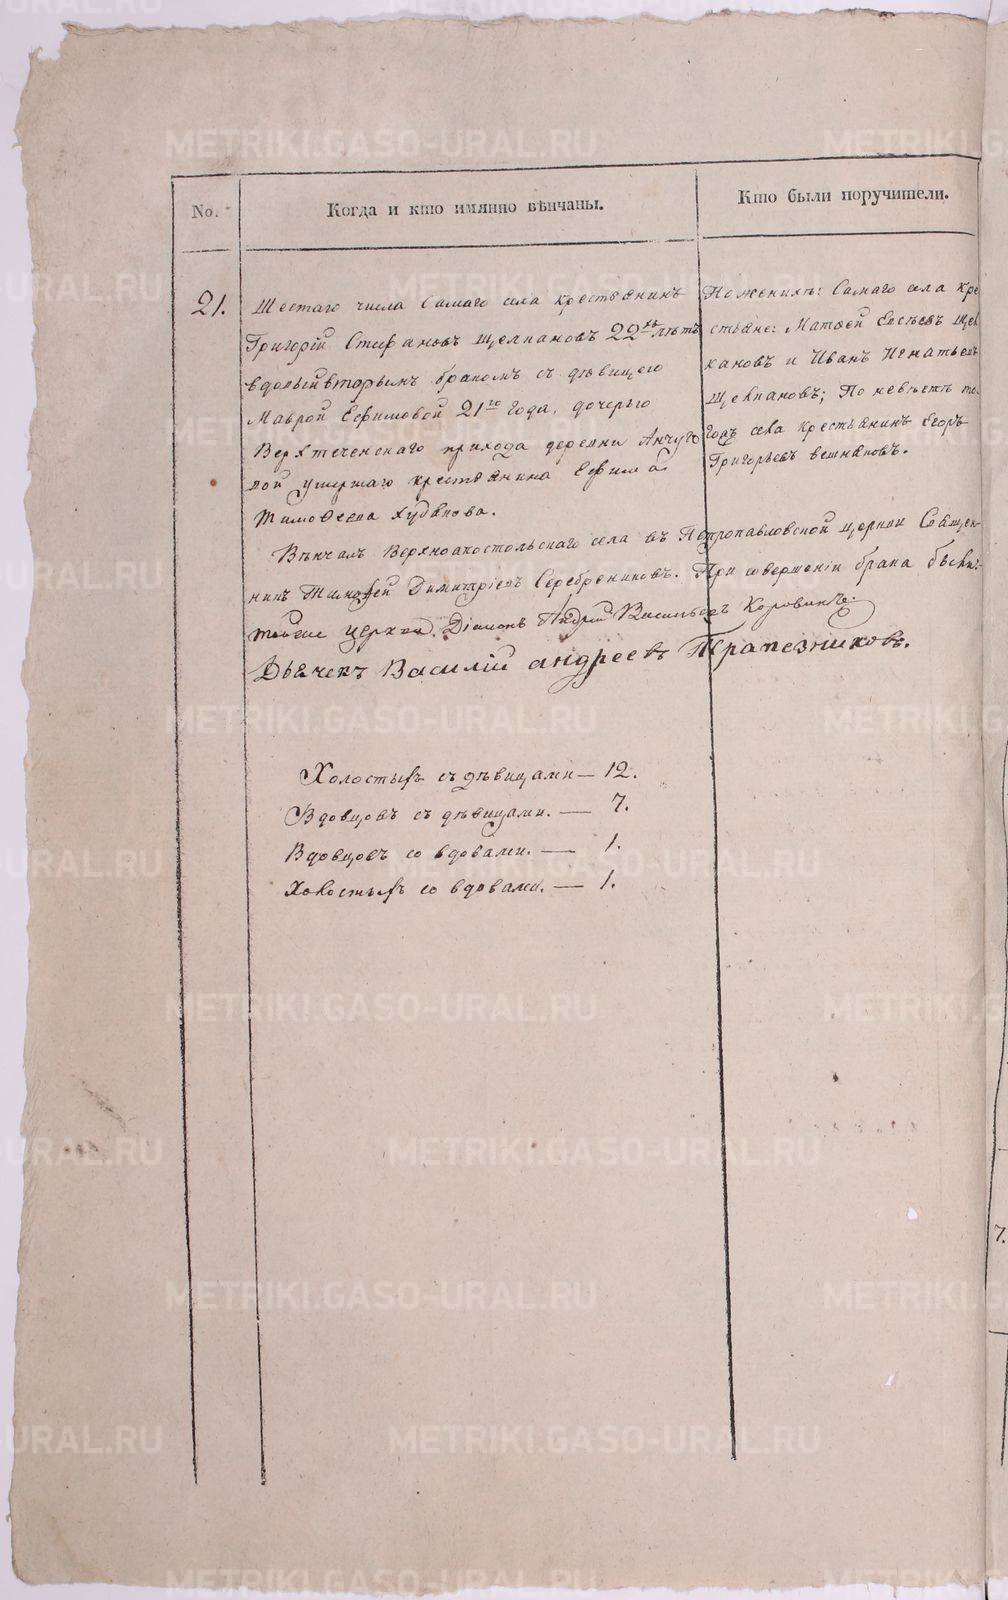 No.
Когда и кто имянно вѣнчаны.
Кто были поручители.
21.
Шестаго числа Самаго села крестьянинъ
Григорій Стефановъ Щелкановъ 22хъ лѣтъ
вдовый вторымъ бракомъ съ дѣвицею
Маврой Ефимовой 21го года, дочерью
Верхтеченскаго прихода деревни Анчуго
вой умершаго крестьянина Ефима
Тимофеева Худякова.
По женихѣ: Самаго села кре
стьяне: Матвей Евсѣевъ Щел
кановъ и Иванъ Игнатьевъ
Щелкановъ; По невѣстѣ то
гожъ села крестьянинъ Егоръ
Григорьевъ вешняковъ.
Вѣнчалъ Верхноапостольскаго села въ Петропавловской церкви Священ-
никъ Тимофей Димитріевъ Серебрениковъ. При совершеніи брака были
тойже церкви Діаконъ Андрей Васильевъ Коровинъ.
Дьячекъ Василій андреевъ Трапезниковъ.
Холостыхъ съ дѣвицами — 12.
Вдовцовъ съ дѣвицами. — 7.
Вдовцовъ со вдовами. — 1.
Холостыхъ со вдовами. — 1.
7.
METRIKI.GASO-URAL.RU